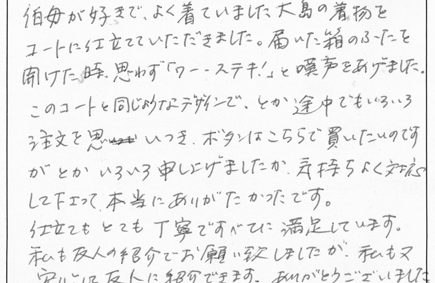 伯母が好きで、よく着ていました大島の着物を
コートに仕立てていただきました。届いた箱のふたを
開けた時、思わず「ワー・ステキ!」と嘆声をあげました。
このコートと同じようなデザインで、とか途中でもいろいろ
注文を思いつき、ボタンはこちらで買いたいのです
がとかいろいろ申し上げましたが、気持ちよく対応
して下さって、本当にありがたかったです。
仕立てもとても丁寧ですべてに満足しています。
私も友人の紹介でお願い致しましたが、私も又
安心して友人に紹介できます。ありがとうございました